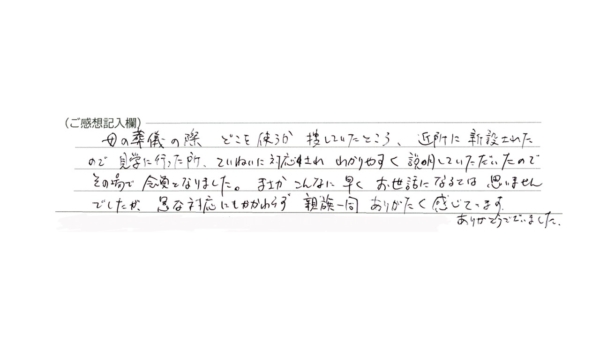 (ご感想記入欄)
母の葬儀の際 どこを使うか 捜していたところ、近所に新設された
ので見学に行った所、ていねいに対応され わかりやすく説明していただいたので
その場で会員となりました。まさかこんなに早くお世話になるとは思いません
でしたが、急な対応にもかかわらず 親族一同 ありがたく感じています
ありがとうございました。